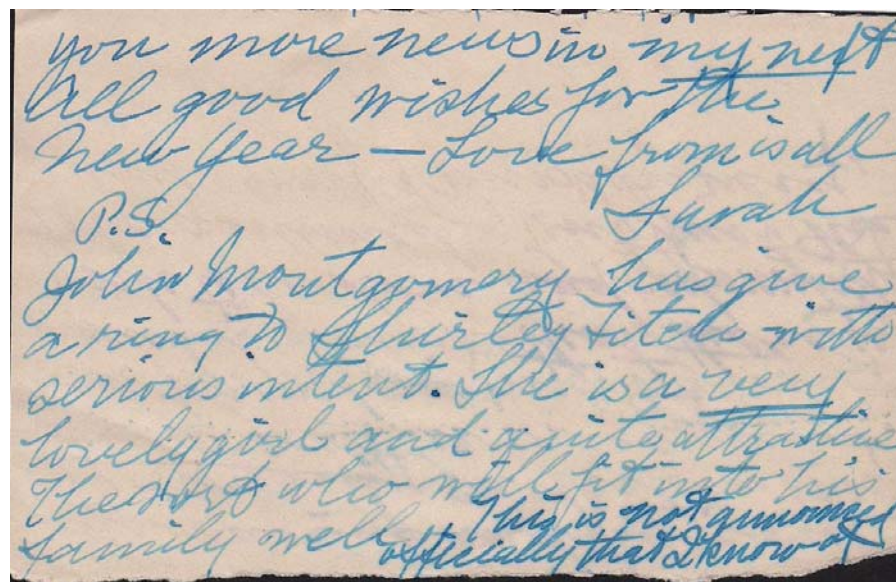 you more news in my next
All good wishes for the
New Year — Love from us all
Sarah
P.S.
John Montgomery has give
a ring to Shirley Fitch with
serious intent. She is a very
lovely girl and quite attractive
The sort who will fit into his
family well. This is not announced
officially that I know of